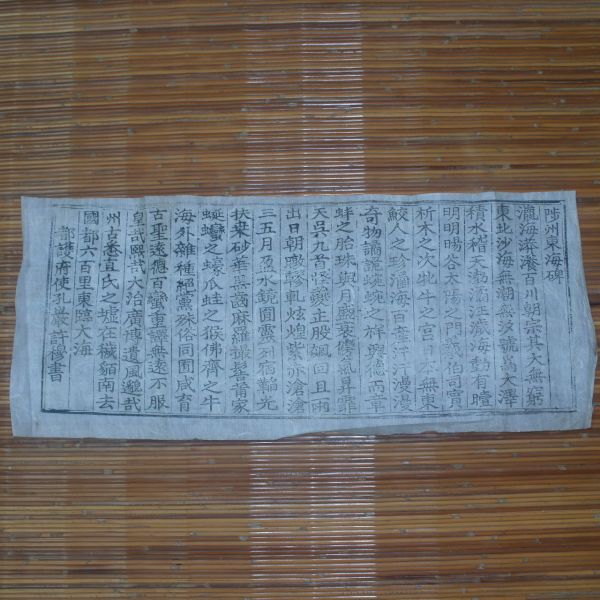 陟州東海碑
瀛海漭瀁百川朝宗其大無窮
東北沙海無潮無汐號爲大澤
積水稽天渤潏汪濊海動有曀
明明暘谷太陽之門羲伯司賓
析木之次牝牛之宮日本無東
鮫人之珍涵海百産汗汗漫漫
奇物譎詭蜿蜿之祥興德而章
蚌之胎珠與月盛衰旁氣昇霏
天吳九首怪夔一股飇回且雨
出日朝暾轇軋炫煌紫赤滄滄
三五月盈水鏡圓靈列宿韜光
扶桑砂華黑齒麻羅撮髻莆家
蜒蠻之蠔瓜蛙之猴佛齊之牛
海外雜種絕黨殊俗同囿咸育
古聖遠德百蠻重譯無遠不服
皇哉熙哉大治廣博遺風邈哉
州古悉直氏之墟在穢貊南去
國都六百里東臨大海
都護府使孔巖許穆書